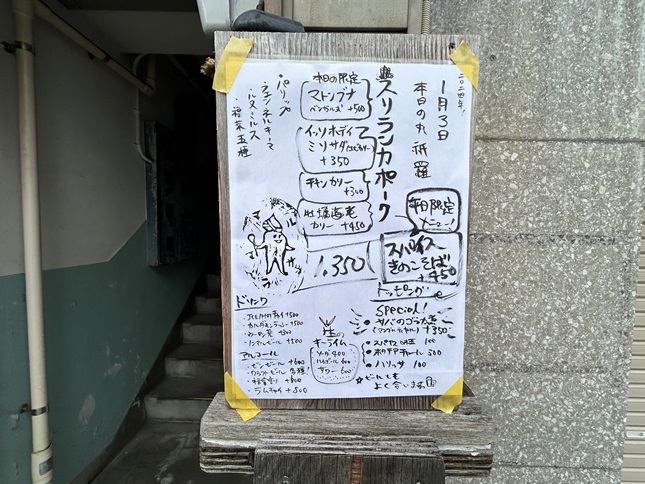 二〇二四年!
1月3日
本日の丸祇羅
スリランカポーク
本日の限定
マトンブナ
ベンガルズ +500
イッソホディ
ミリサダ
+350
チキンカリー
+300
牡蠣海老
カリー +450
・パリップ
・フェンネルキーマ
・ルヌミルス
・福菜玉煙
平日限定
メニュー!
スパイス
きのこそば!
+450
1,350
トッピング
special!
・サバのゴラカ煮
+350
・スパイス味玉 100
・ホタテチャトニ 300
・ハリッサ 100
☆ビールでも
よく合います
ドリンク
・アイス/ホットチャイ +500
・ウーロン茶 +300
・ノンアルビール +500
アルコール
・ビンビール +600
・クラフトビール 各種!
+600
・ラムチャイ +800
生の
キーライム
ソーダ 400
ハイボール 600
サワー 600